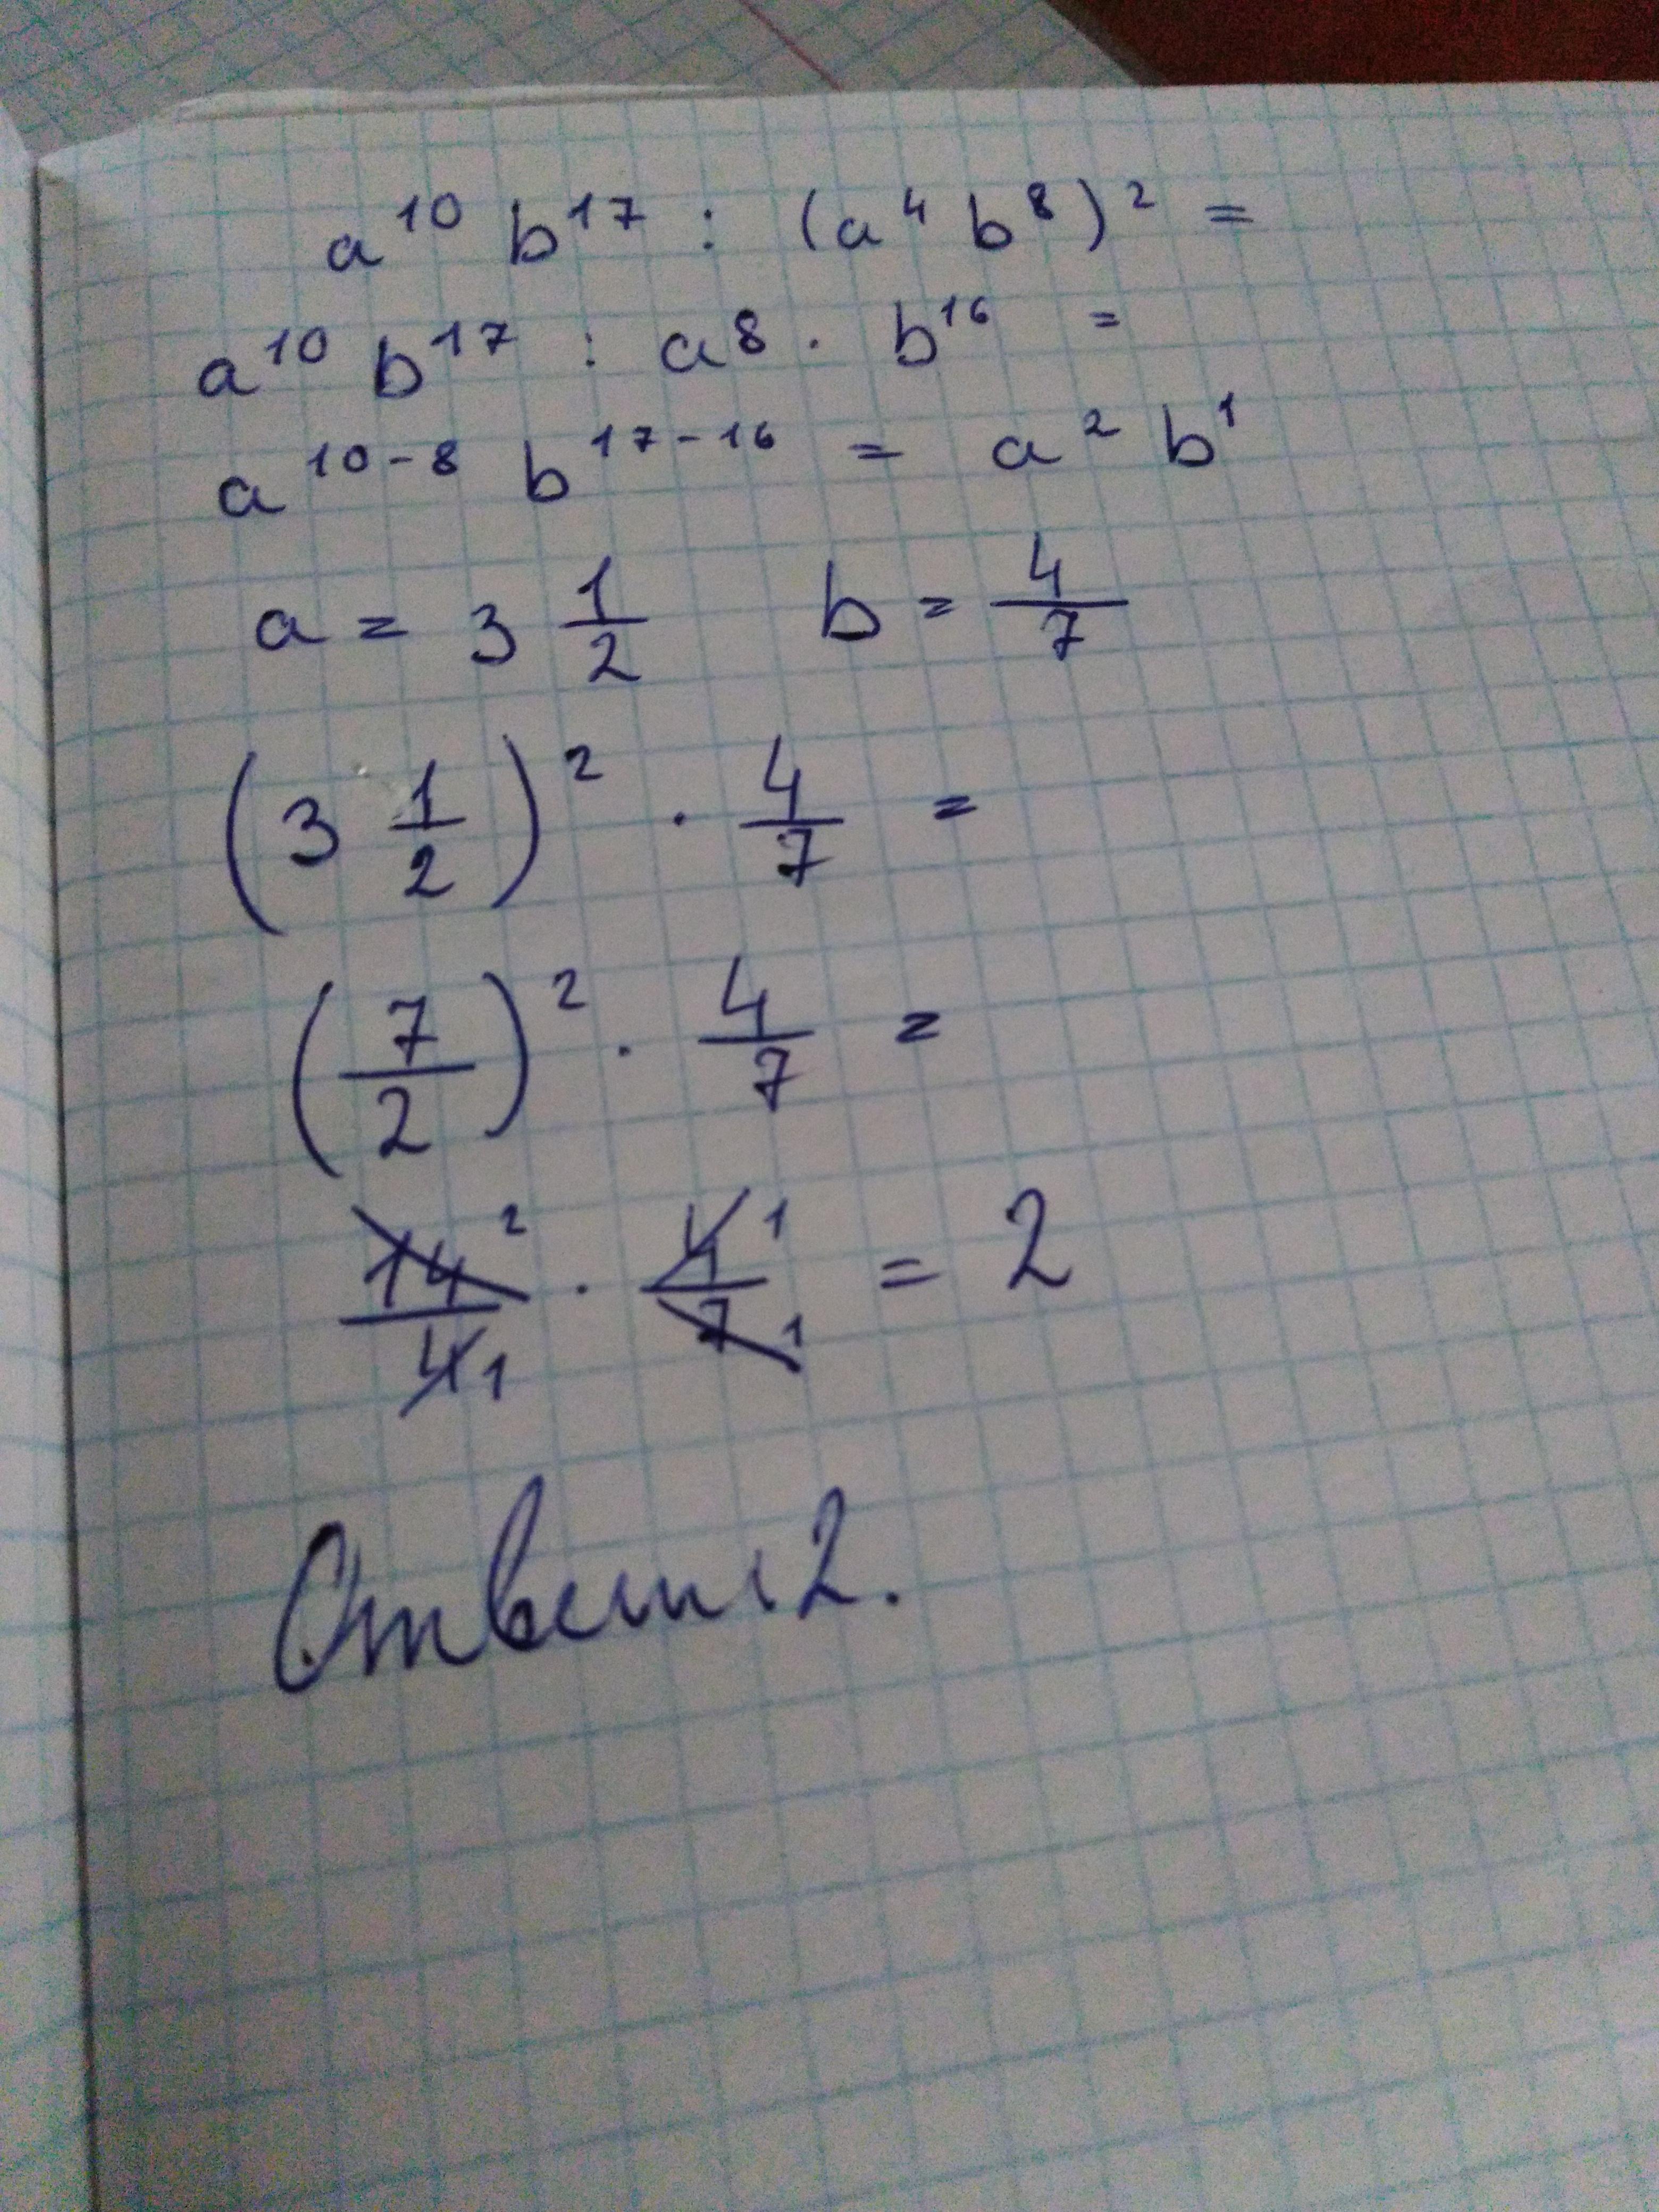 a¹⁰ b¹⁷ : (a⁴ b⁸)² =
a¹⁰ b¹⁷ : a⁸ · b¹⁶ =
a¹⁰⁻⁸ b¹⁷⁻¹⁶ = a² b¹
a = 3 1/2 b = 4/7
(3 1/2)² · 4/7 =
(7/2)² · 4/7 =
14² / 4₁ · 4¹ / 7₁ = 2
Ответ: 2.